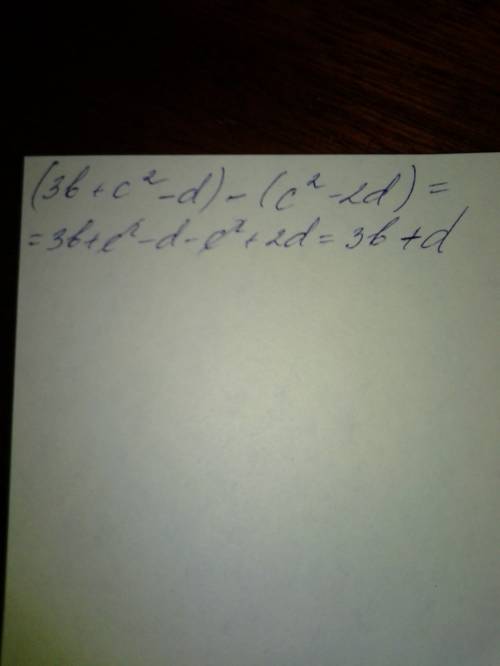 (3b + c² - d) - (c² - 2d) =
= 3b + c² - d - c² + 2d = 3b + d